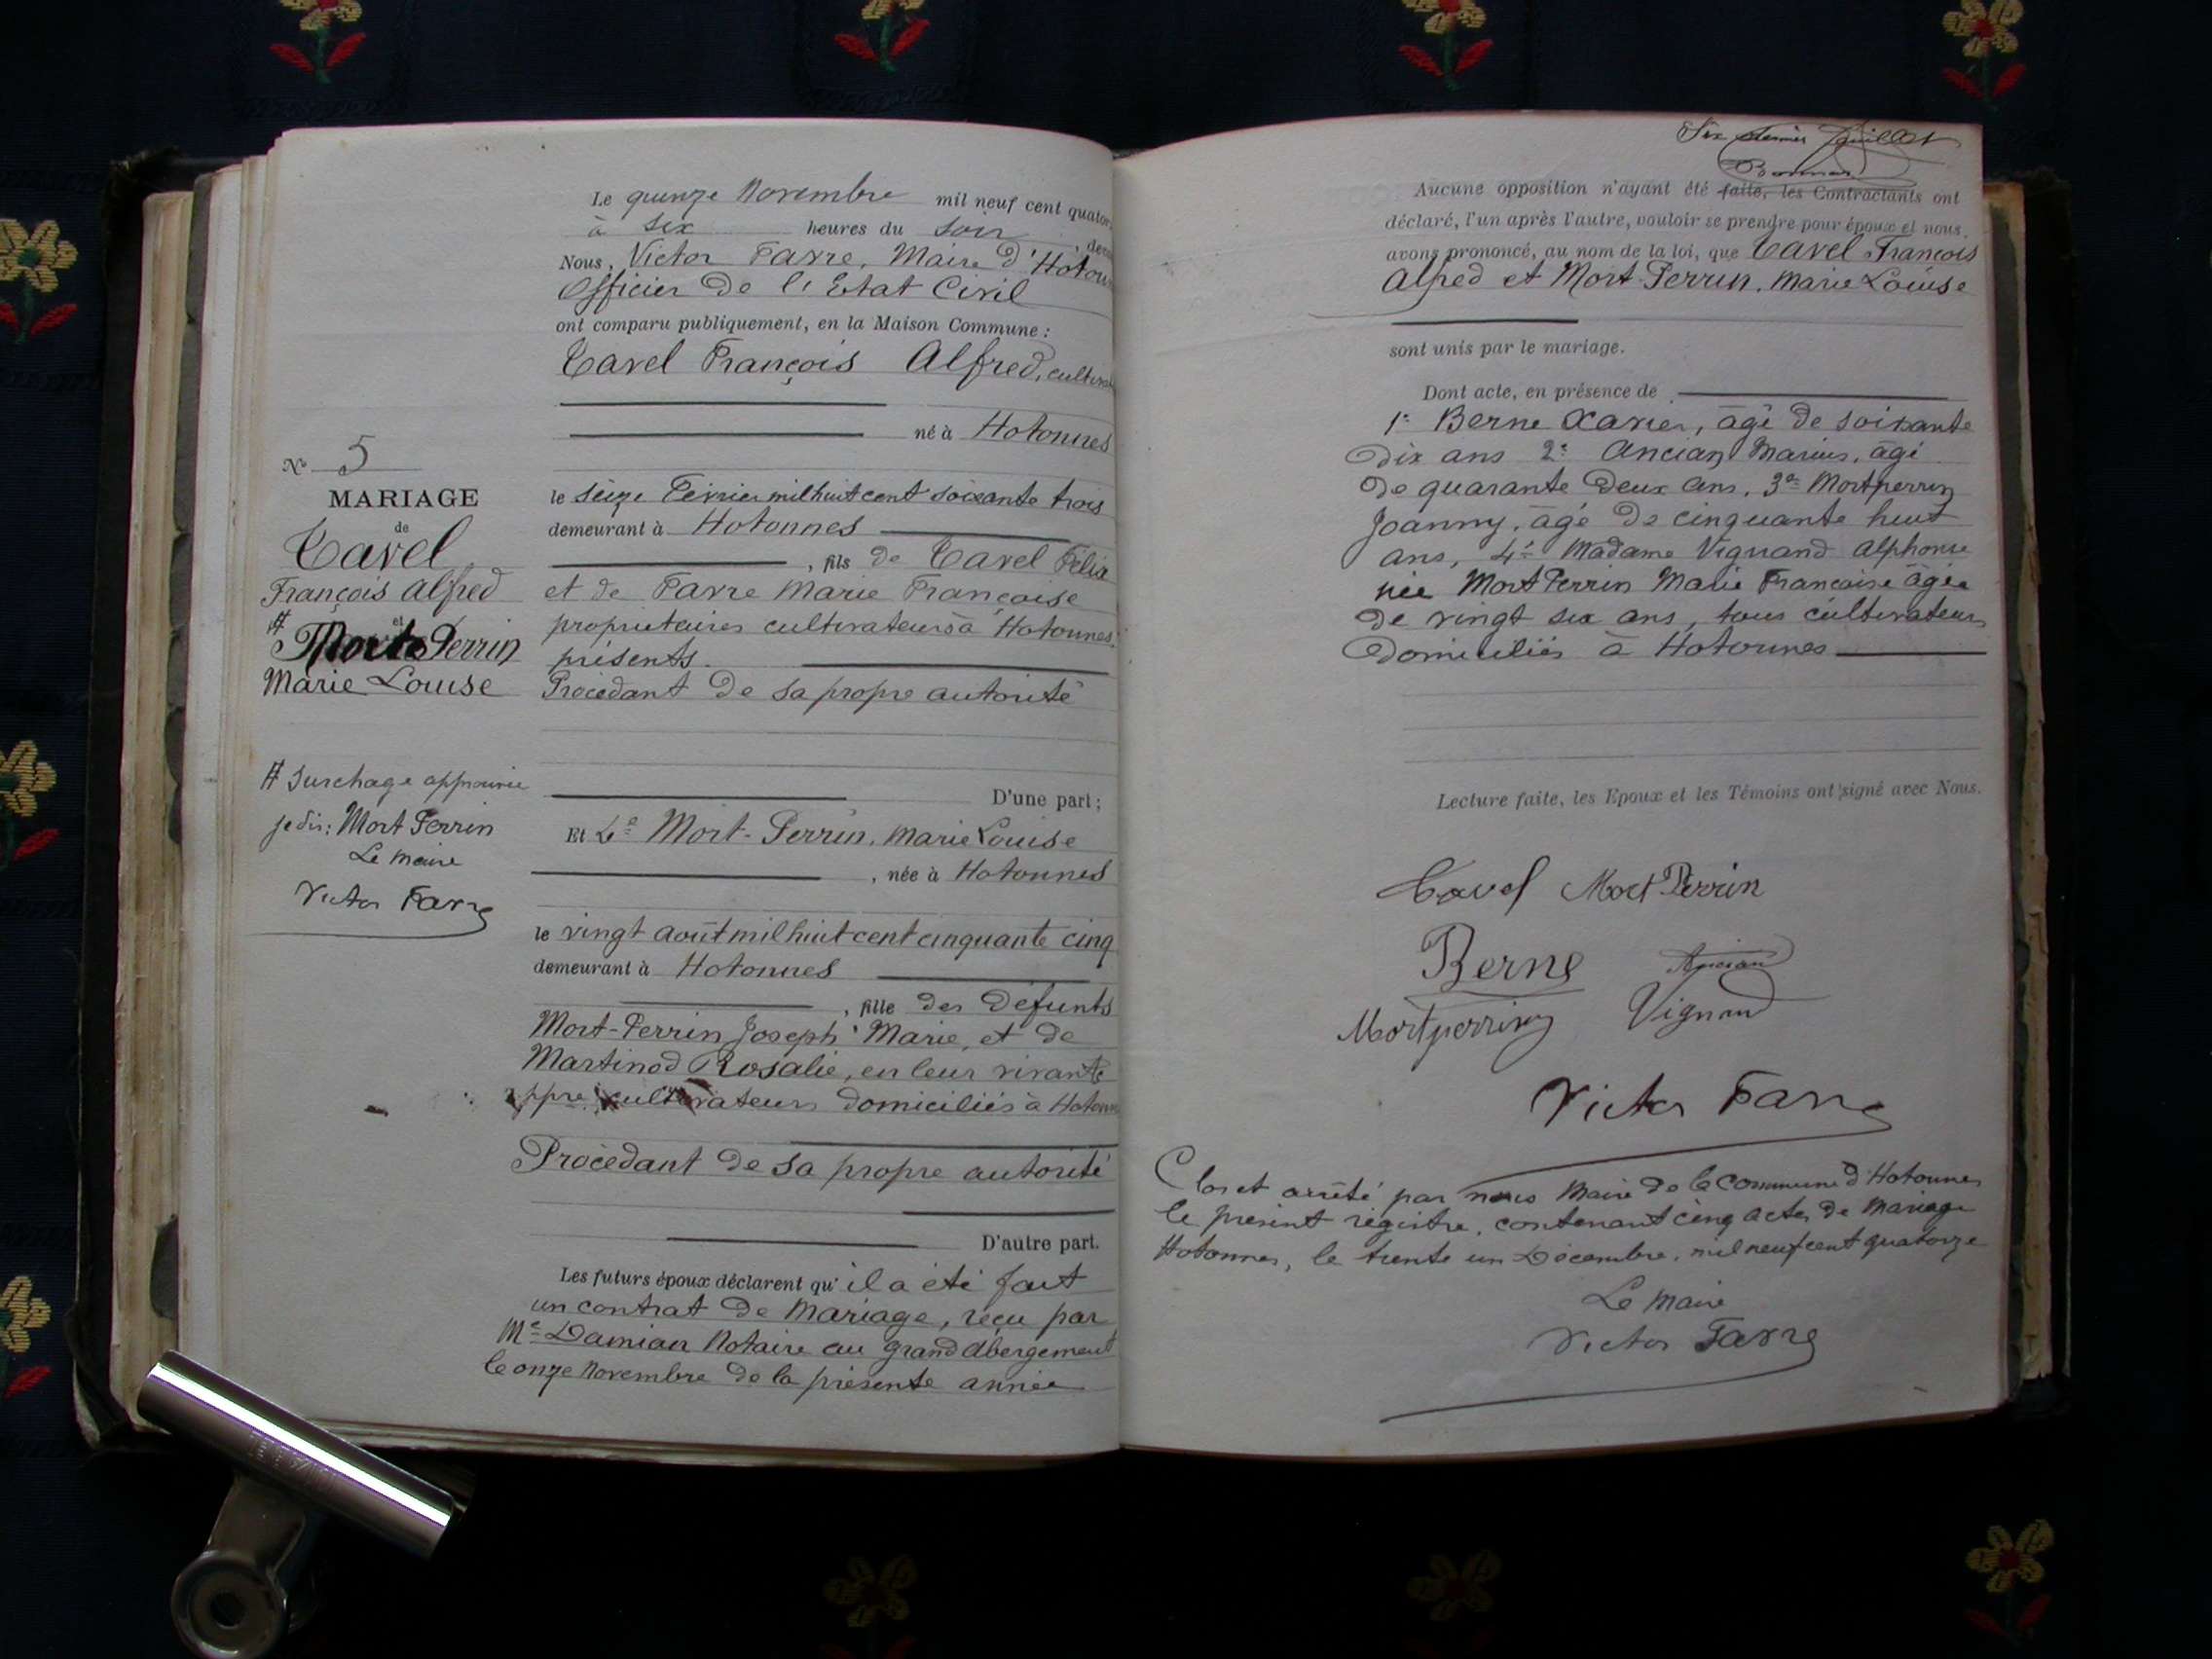 Le quinze Novembre mil neuf cent quator
à six heures du soir, deva
Nous, Victor Favre, Maire d'Hotonn
Officier de l'Etat Civil
ont comparu publiquement, en la Maison Commune :
Tavel François Alfred, cultivat
né à Hotonnes
le seize Février mil huit cent soixante trois
demeurant à Hotonnes
, fils de Tavel Félix
et de Favre Marie Françoise
propriétaires cultivateurs à Hotonnes
présents.
Procédant de sa propre autorité
D'une part ;
Et Le Mort-Perrin, Marie Louise
, née à Hotonnes
le vingt août mil huit cent cinquante cinq
demeurant à Hotonnes
, fille des défunts
Mort-Perrin Joseph Marie, et de
Martinod Rosalie, en leur vivant
ppre cultivateurs domiciliés à Hotonn
Procédant de sa propre autorité
D'autre part.
Les futurs époux déclarent qu'il a été fait
un contrat de mariage, reçu par
Me Damian Notaire au grand abergement
le onze Novembre de la présente année
No 5
MARIAGE
de
Tavel
François Alfred
# et
Mort Perrin
Marie Louise
# Surchage approuvée
je dis: Mort Perrin
Le maire
Victor Favre
Six dernier feuillet
Aucune opposition n'ayant été faite, les Contractants ont
déclaré, l'un après l'autre, vouloir se prendre pour époux et nous
avons prononcé, au nom de la loi, que Tavel François
Alfred et Mort-Perrin, Marie Louise
sont unis par le mariage.
Dont acte, en présence de
1° Berne Xavier, âgé de soixante
dix ans 2° Ancian Marius, âgé
de quarante deux ans, 3° Mortperrin
Joanny, âgé de cinquante huit
ans, 4° Madame Vignand Alphonse
née Mort Perrin Marie Françoise âgée
de vingt six ans, tous cultivateurs
domiciliés à Hotonnes
Lecture faite, les Epoux et les Témoins ont signé avec Nous.
Tavel Mort Perrin
Berne Ancian
Mortperrin Vignand
Victor Favre
Clos et arrêté par nous Maire de la Commune d'Hotonnes
le présent régistre, contenant cinq actes de Mariage
Hotonnes, le trente un Décembre, mil neuf cent quatorze
Le Maire
Victor Favre